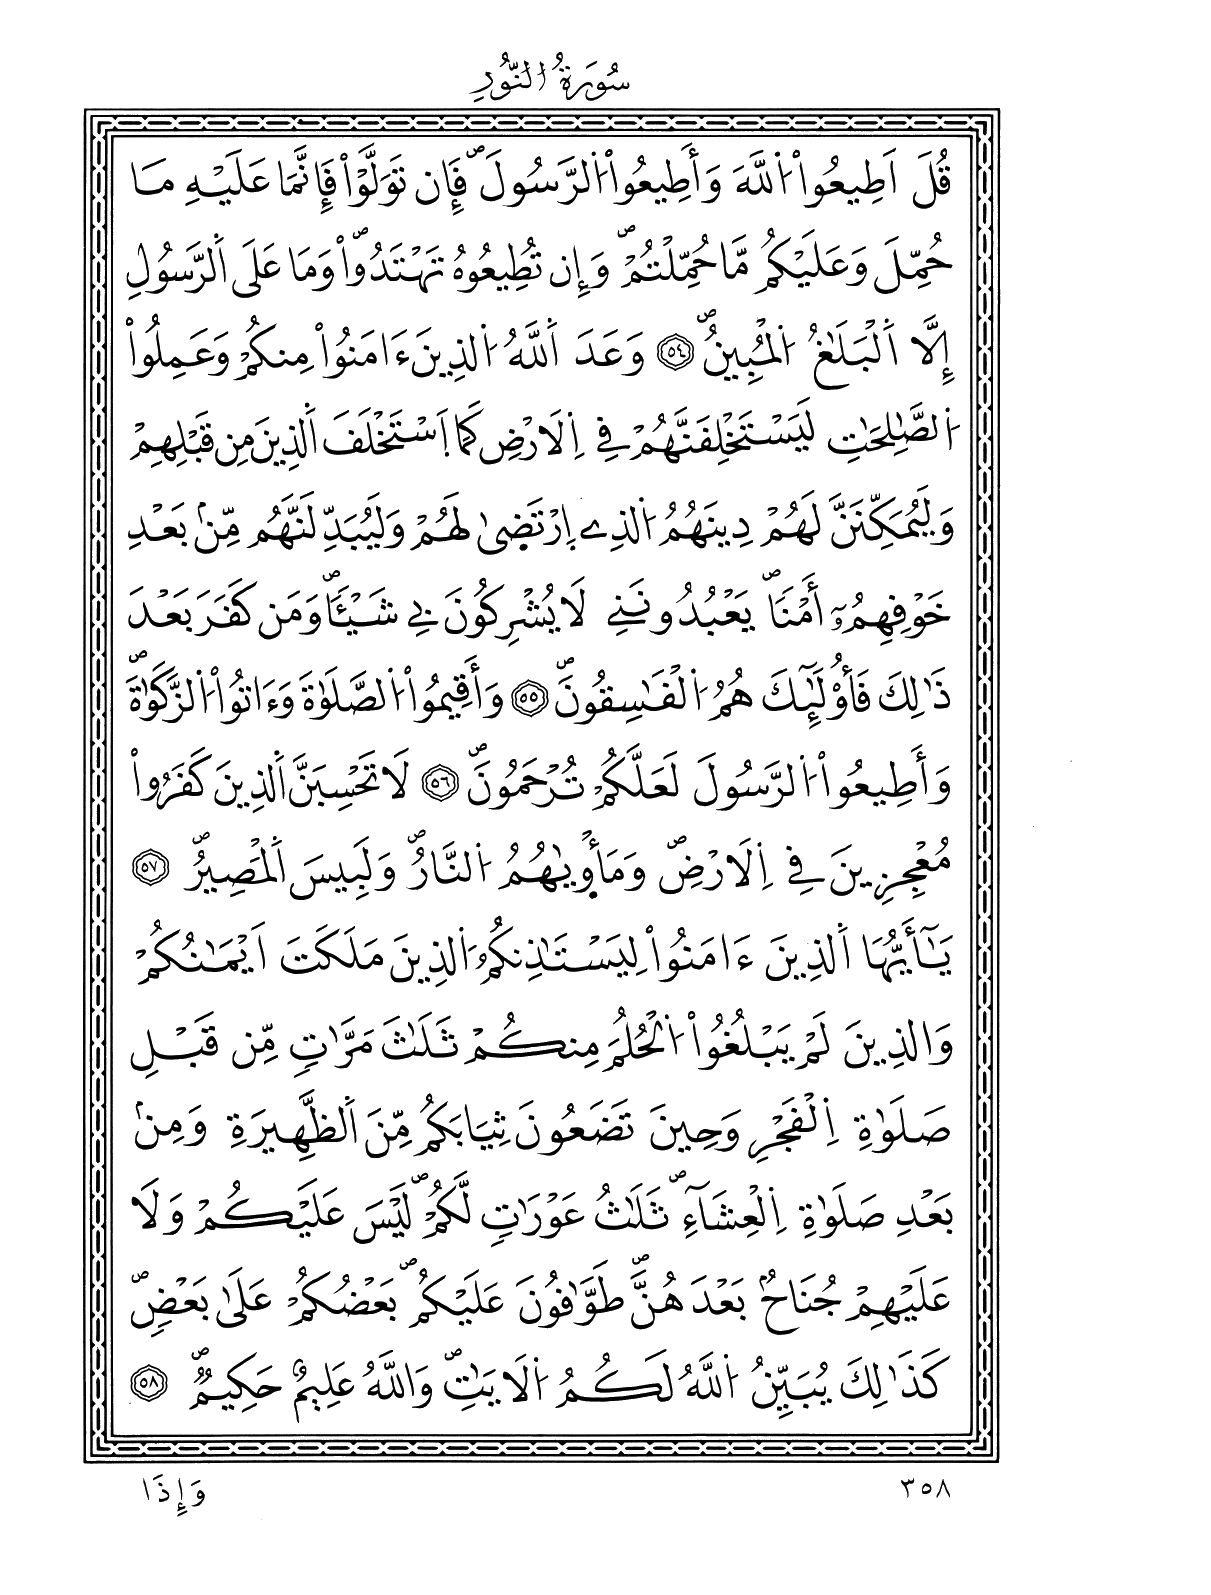 سُورَةُ النُّورِ
قُلَ اَطِيعُواْ اُللَّهَ وَأَطِيعُواْ اُلرَّسُولَۖ فَإِن تَوَلَّوْاْ فَإِنَّمَا عَلَيْهِ مَا
حُمِّلَ وَعَلَيْكُم مَّا حُمِّلْتُمْۖ وَإِن تُطِيعُوهُ تَهْتَدُواْۖ وَمَا عَلَى اَلرَّسُولِ
إِلَّا اَلْبَلَٰغُ اُلْمُبِينُۖ ٥٤ وَعَدَ اَللَّهُ اُلذِينَ ءَامَنُواْ مِنكُمْ وَعَمِلُواْ
اُلصَّٰلِحَٰتِ لَيَسْتَخْلِفَنَّهُمْ فِے اِلَارْضِ كَمَا اَسْتَخْلَفَ اَلذِينَ مِن قَبْلِهِمْ
وَلَيُمَكِّنَنَّ لَهُمْ دِينَهُمُ اُلذِے اِرْتَضَىٰ لَهُمْ وَلَيُبَدِّلَنَّهُم مِّنۢ بَعْدِ
خَوْفِهِمُۥٓ أَمْنَاۖ يَعْبُدُونَنِے لَا يُشْرِكُونَ بِے شَيْـَٔاۖ وَمَن كَفَرَ بَعْدَ
ذَٰلِكَ فَأُوْلَٰٓئِكَ هُمُ اُلْفَٰسِقُونَۖ ٥٥ وَأَقِيمُواْ اُلصَّلَوٰةَ وَءَاتُواْ اُلزَّكَوٰةَۖ
وَأَطِيعُواْ اُلرَّسُولَ لَعَلَّكُمْ تُرْحَمُونَۖ ٥٦ لَا تَحْسِبَنَّ اَلذِينَ كَفَرُواْ
مُعْجِزِينَ فِے اِلَارْضِۖ وَمَأْوۭيٰهُمُ اُلنَّارُۖ وَلَبِيسَ اَلْمَصِيرُۖ ٥٧
يَٰٓأَيُّهَا اَلذِينَ ءَامَنُواْ لِيَسْتَٰذِنكُمُ اُلذِينَ مَلَكَتَ اَيْمَٰنُكُمْ
وَالذِينَ لَمْ يَبْلُغُواْ اُلْحُلُمَ مِنكُمْ ثَلَٰثَ مَرَّٰتٖ مِّن قَبْلِ
صَلَوٰةِ اِلْفَجْرِ وَحِينَ تَضَعُونَ ثِيَابَكُم مِّنَ اَلظَّهِيرَةِ وَمِنۢ
بَعْدِ صَلَوٰةِ اِلْعِشَآءِۖ ثَلَٰثُ عَوْرَٰتٖ لَّكُمْۖ لَيْسَ عَلَيْكُمْ وَلَا
عَلَيْهِمْ جُنَاحُۢ بَعْدَهُنَّۖ طَوَّٰفُونَ عَلَيْكُمۖ بَعْضُكُمْ عَلَىٰ بَعْضٖۖ
كَذَٰلِكَ يُبَيِّنُ اُللَّهُ لَكُمُ اُلَايَٰتِۖ وَاللَّهُ عَلِيمٌ حَكِيمٞۖ ٥٨
وَإِذَا
٣٥٨